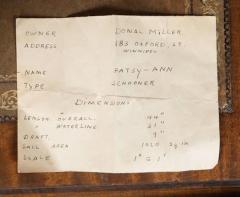 OWNER DONAL MILLER
ADDRESS 183 OXFORD, ST
WINNIPEG
NAME PATSY-ANN
TYPE SCHOONER
DIMENSIONS
LENGTH OVERALL 44"
" WATERLINE 31"
DRAFT 9"
SAIL AREA 1020 Sq in
SCALE 1" to 1'